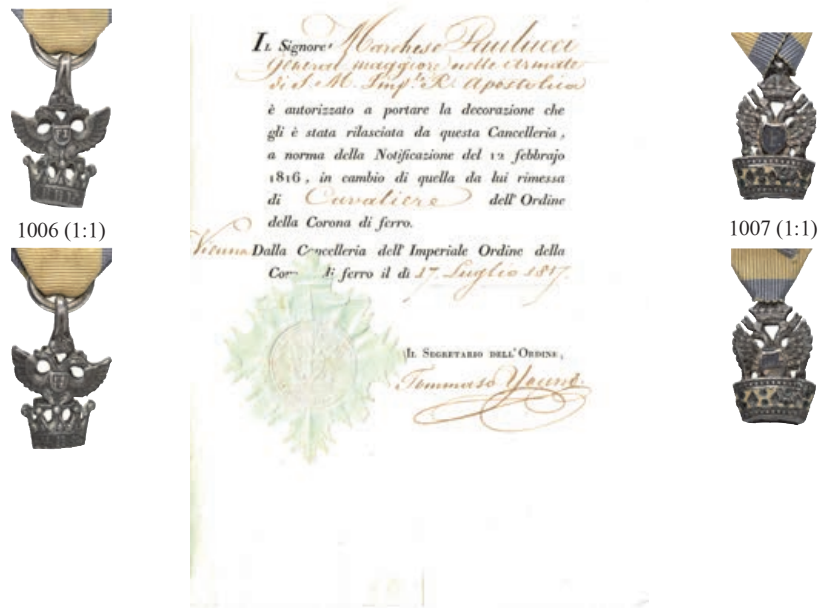 Il Signore Marchese Paulucci
General maggiore nelle Armate
di S. M. Imp.le R. Apostolica
è autorizzato a portare la decorazione che
gli è stata rilasciata da questa Cancelleria,
a norma della Notificazione del 12 febbrajo
1816, in cambio di quella da lui rimessa
di Cavaliere dell' Ordine
della Corona di ferro.
Vienna Dalla Cancelleria dell' Imperiale Ordine della
di ferro il dì 17. Luglio 1817.
Il Segretario dell' Ordine,
Tommaso
1006 (1:1)
1007 (1:1)